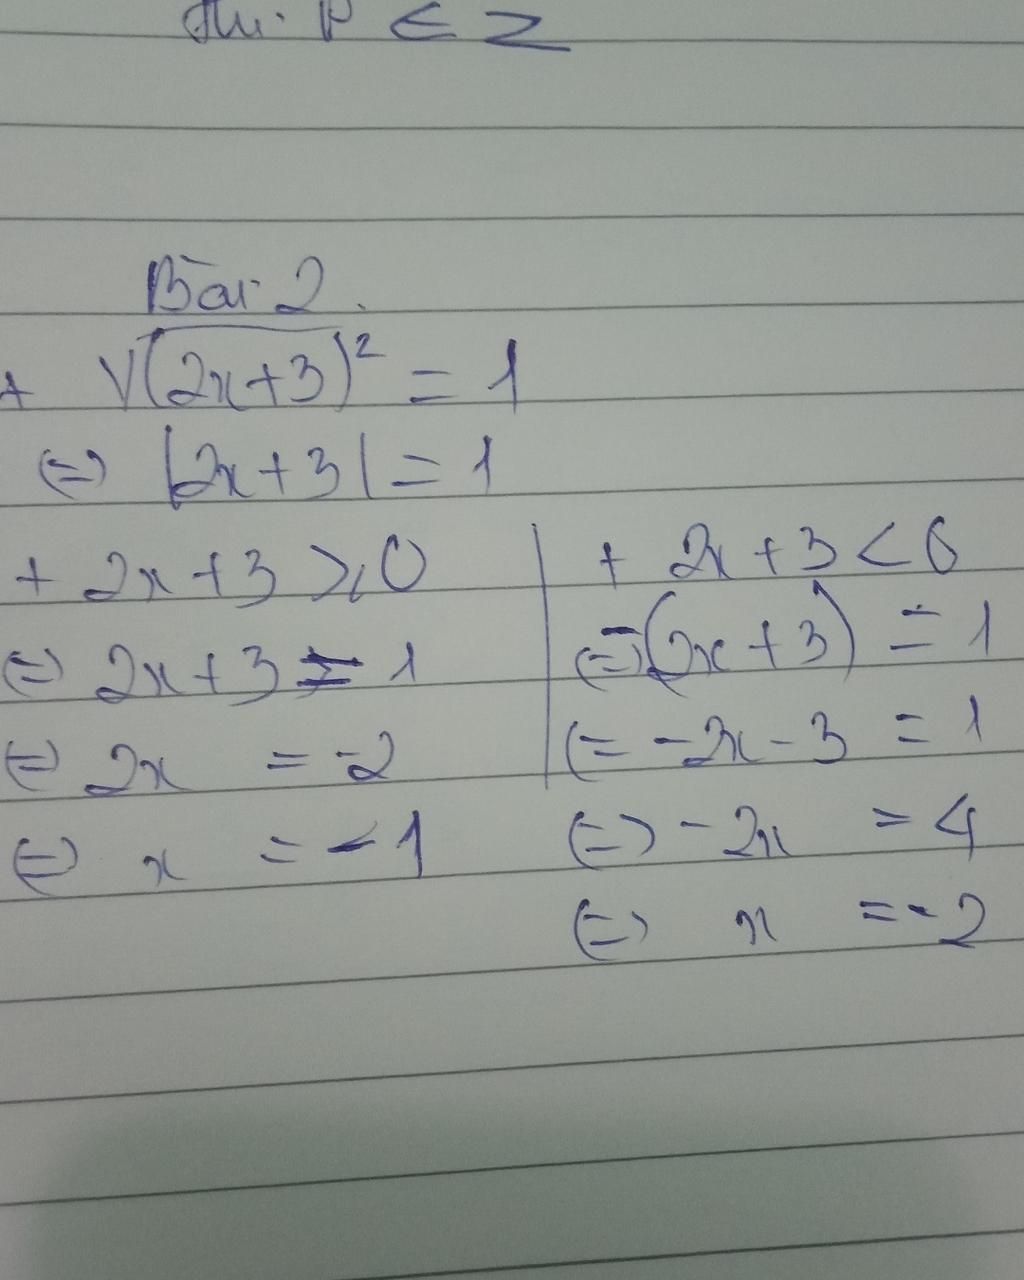 thì P ∈ Z
Bài 2.
+ √(2x+3)² = 1
⇔ |2x+3| = 1
+ 2x+3 ≥ 0
⇔ 2x+3 = 1
⇔ 2x = -2
⇔ x = -1
+ 2x+3 < 0
⇔ -(2x+3) = 1
⇔ -2x-3 = 1
⇔ -2x = 4
⇔ x = -2